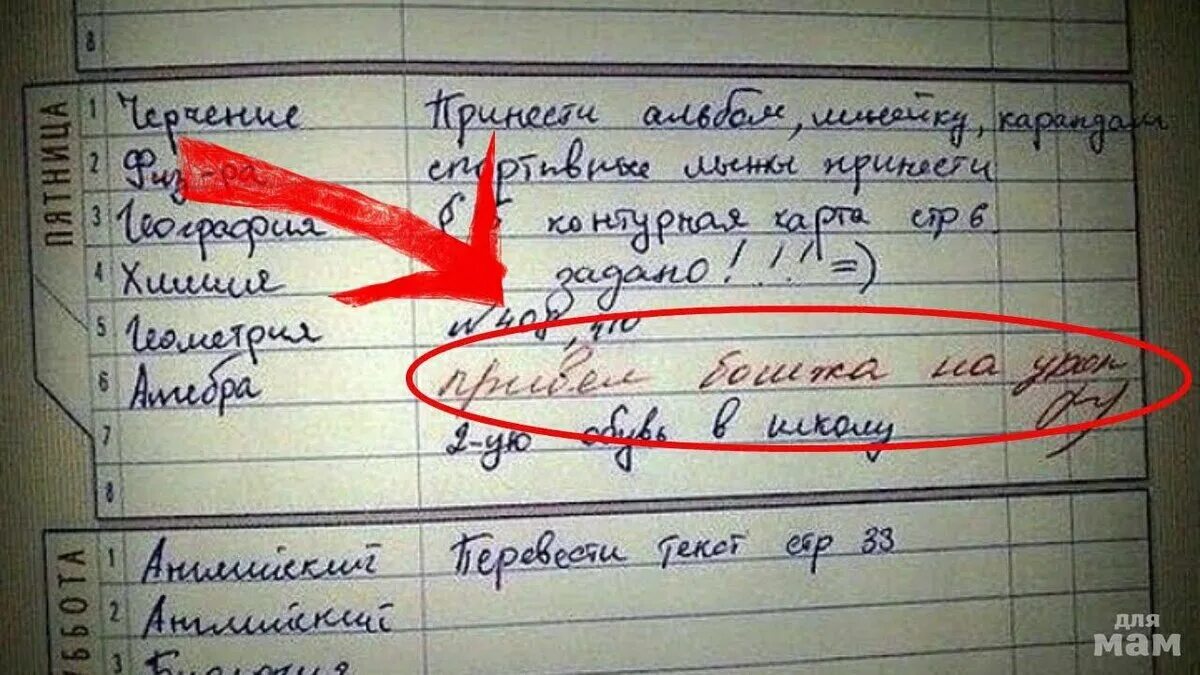 8
ПЯТНИЦА
1 Черчение Принести альбом, линейку, карандаш
2 Физ-ра спортивные лыжи принести
3 География контурная карта стр 6
4 Химия задано!!!! =)
5 Геометрия № 408, 410
6 Алгебра привел бомжа на урок
7 2-ую обувь в школу
8
СУББОТА
1 Английский Перевести текст стр 33
2 Английский
3 Биология
для
мам